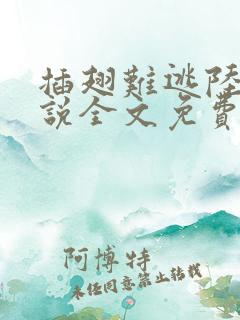 插翅難逃陸
說全文免費
阿博特
未经同意禁止转载